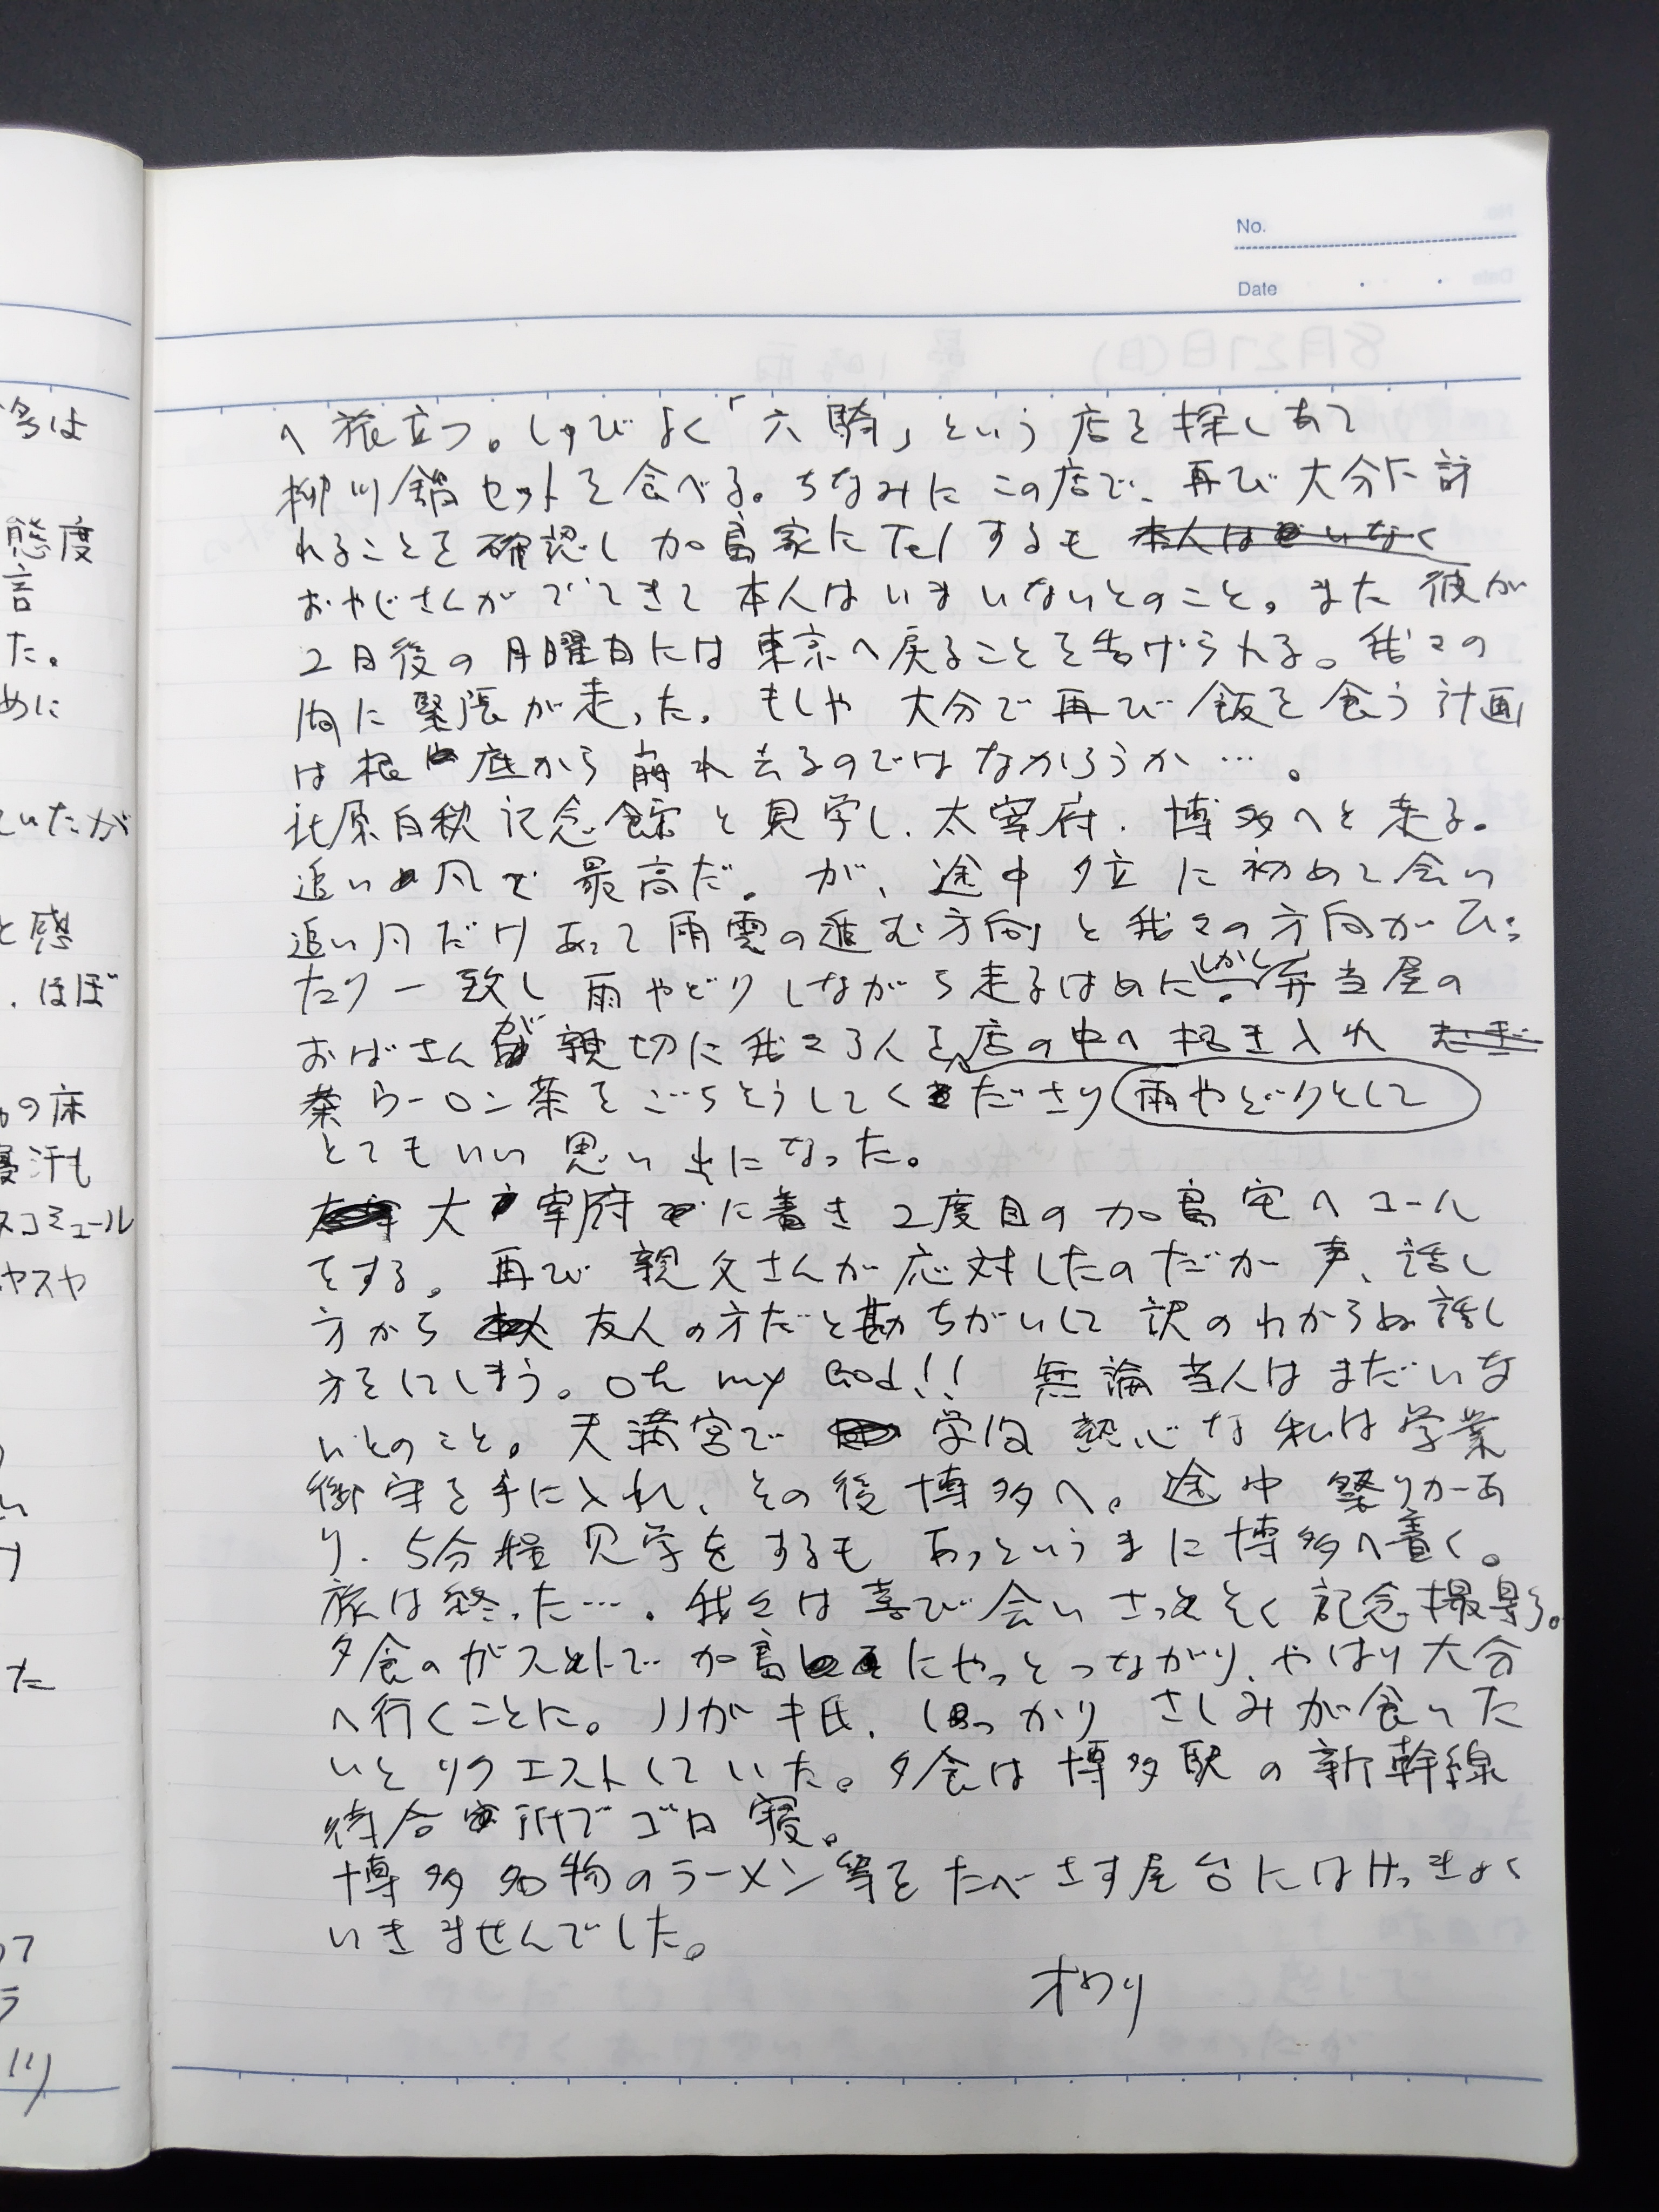 No.
Date
へ旅立つ。しゅびよく「六騎」という店を探しあて
柳川鍋セットを食べる。ちなみにこの店で、再び大分に訪
れることを確認し加島家にTelするも 本人はいなく
おやじさんがでてきて本人はいまいないとのこと。また彼が
2日後の月曜日には東京へ戻ることを告げられる。我々の
間に緊張が走った。もしや 大分で再び飯を食う計画
は根底から崩れ去るのではなかろうか…。
北原白秋記念館と見学し、太宰府、博多へと走る。
追い風で最高だ。が、途中夕立に初めて会い
追い風だけあって雨雲の進む方向と我々の方向がぴっ
たり一致し雨やどりしながら走るはめに。しかし弁当屋の
おばさんが親切に我々3人を店の中へ招き入れ
ウーロン茶をごちそうしてくださり 雨やどりとして
とてもいい思い出になった。
大宰府に着き2度目の加島宅へコール
をする。再び親父さんが応対したのだが声、話し
方から 友人の方だと勘ちがいして訳のわからぬ話し
方をしてしまう。Oh my God!! 無論当人はまだいな
いとのこと。天満宮で 学役熱心な私は学業
御守を手に入れ、その後博多へ。途中祭りがあ
り、5分程見学をするもあっというまに博多へ着く。
旅は終った…。我々は喜び会いさっそく記念撮影。
夕食のガストで加島にやっとつながり、やはり大分
へ行くことに。ノリがキ氏、しっかりさしみが食いた
いとリクエストしていた。夕食は博多駅の新幹線
待合所でゴロ寝。
博多名物のラーメン等をたべさす屋台にはけっきょく
いきませんでした。
オワリ
態度
言
た。
めに
ていたが
と感
、ほぼ
の床
寝汗も
スコミュール
ヤスヤ
た